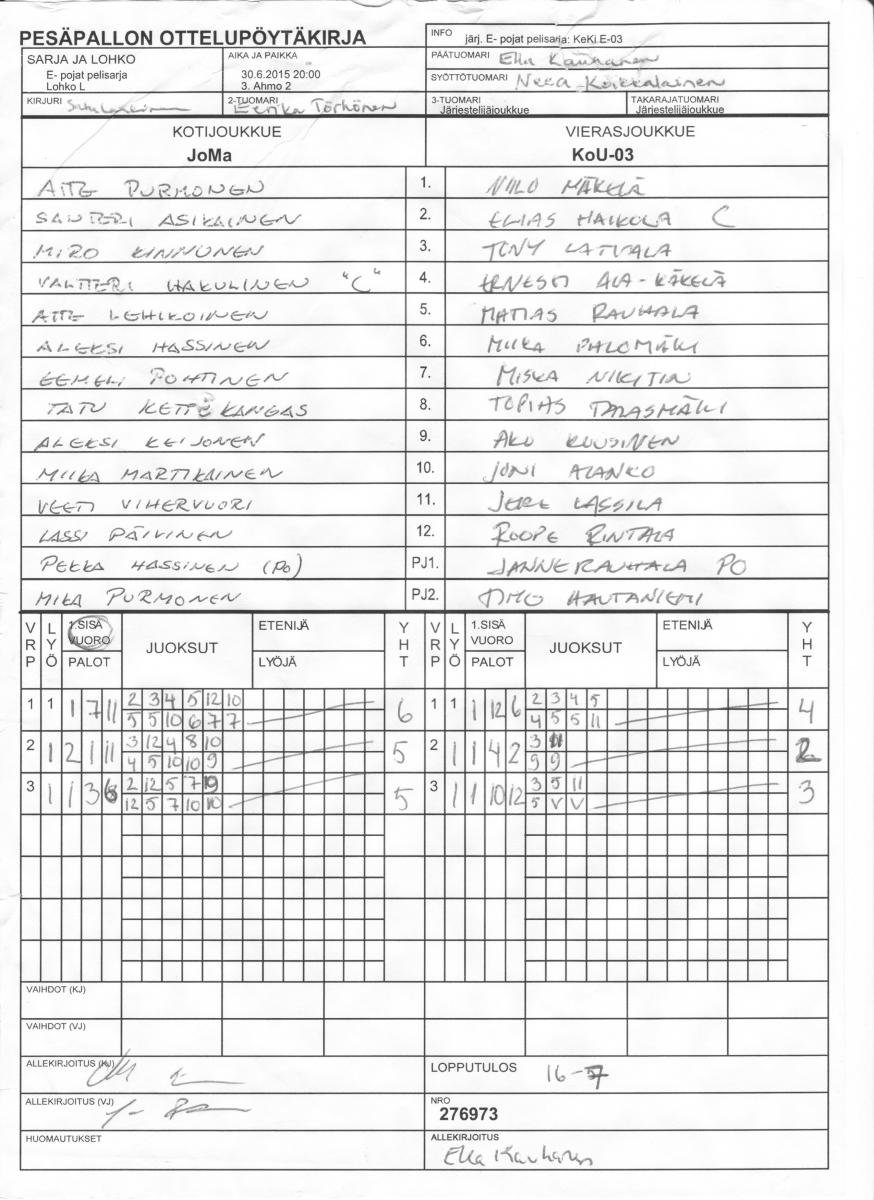 PESÄPALLON OTTELUPÖYTÄKIRJA
INFO järj. E- pojat pelisarja: KeKi E-03
SARJA JA LOHKO
E- pojat pelisarja
Lohko L
AIKA JA PAIKKA
30.6.2015 20:00
3. Ahmo 2
PÄÄTUOMARI Ella Kauhanen
SYÖTTÖTUOMARI Neea Koikkalainen
KIRJURI
2-TUOMARI Eerika Törhönen
3-TUOMARI
Järjestelijäjoukkue
TAKARAJATUOMARI
Järjestelijäjoukkue
KOTIJOUKKUE
JoMa
VIERASJOUKKUE
KoU-03
ATTE PURMONEN 1. NIILO MÄKELÄ
SANTERI ASIKAINEN 2. ELIAS HAIKOLA C
MIRO KINNUNEN 3. TONY LATVALA
VALTTERI HAKULINEN "C" 4. ERNESTI ALA-KÄKELÄ
ATTE LEHIKOINEN 5. MATIAS RAUHALA
ALEKSI HASSINEN 6. MIIKA PALOMÄKI
EEMELI POHTINEN 7. MISKA NIKITIN
TATU KETTÈKANGAS 8. TOPIAS TALASMÄKI
ALEKSI KEIJONEN 9. AKU KUUSINEN
MIIKA MARTIKAINEN 10. JONI ALANKO
VEETI VIHERVUORI 11. JERE LASSILA
LASSI PÄIVINEN 12. ROOPE RINTALA
PEKKA HASSINEN (PO) PJ1. JANNE RAUHALA PO
MIKA PURMONEN PJ2. TIMO HAUTANIEMI
VRP LYÖ 1.SISÄ VUORO PALOT JUOKSUT ETENIJÄ LYÖJÄ YHT VRP LYÖ 1.SISÄ VUORO PALOT JUOKSUT ETENIJÄ LYÖJÄ YHT
1 1 1 7 11 2 3 4 5 12 10 6 1 1 1 12 6 2 3 4 5 4
5 5 10 6 7 7 4 5 5 11
2 1 2 1 11 3 12 4 8 10 5 2 1 1 4 2 3 11 2
4 5 10 10 9 9 9
3 1 1 3 6 2 12 5 7 10 5 3 1 1 10 12 3 5 11 3
12 5 7 10 10 5 V V
VAIHDOT (KJ)
VAIHDOT (VJ)
ALLEKIRJOITUS (KJ)
LOPPUTULOS 16-
ALLEKIRJOITUS (VJ)
NRO
276973
HUOMAUTUKSET
ALLEKIRJOITUS
Ella Kauhanen